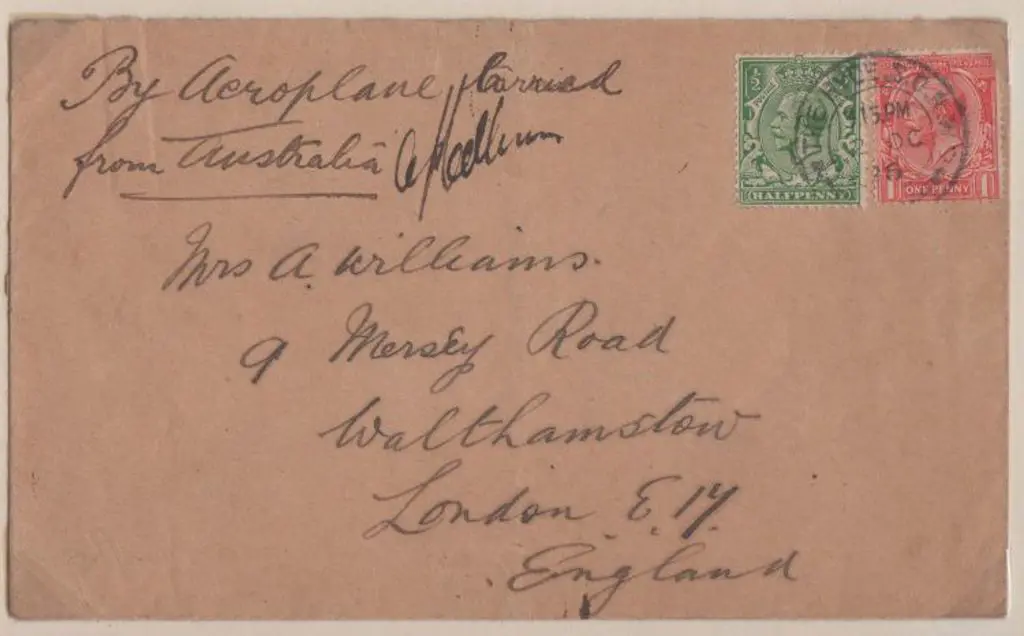 By Aeroplane, Carried
from Australia
Mrs A. Williams.
9 Mersey Road
Walthamstow
London E.17.
England
½
HALFPENNY
1 ONE PENNY 1
THE
15 PM
DC